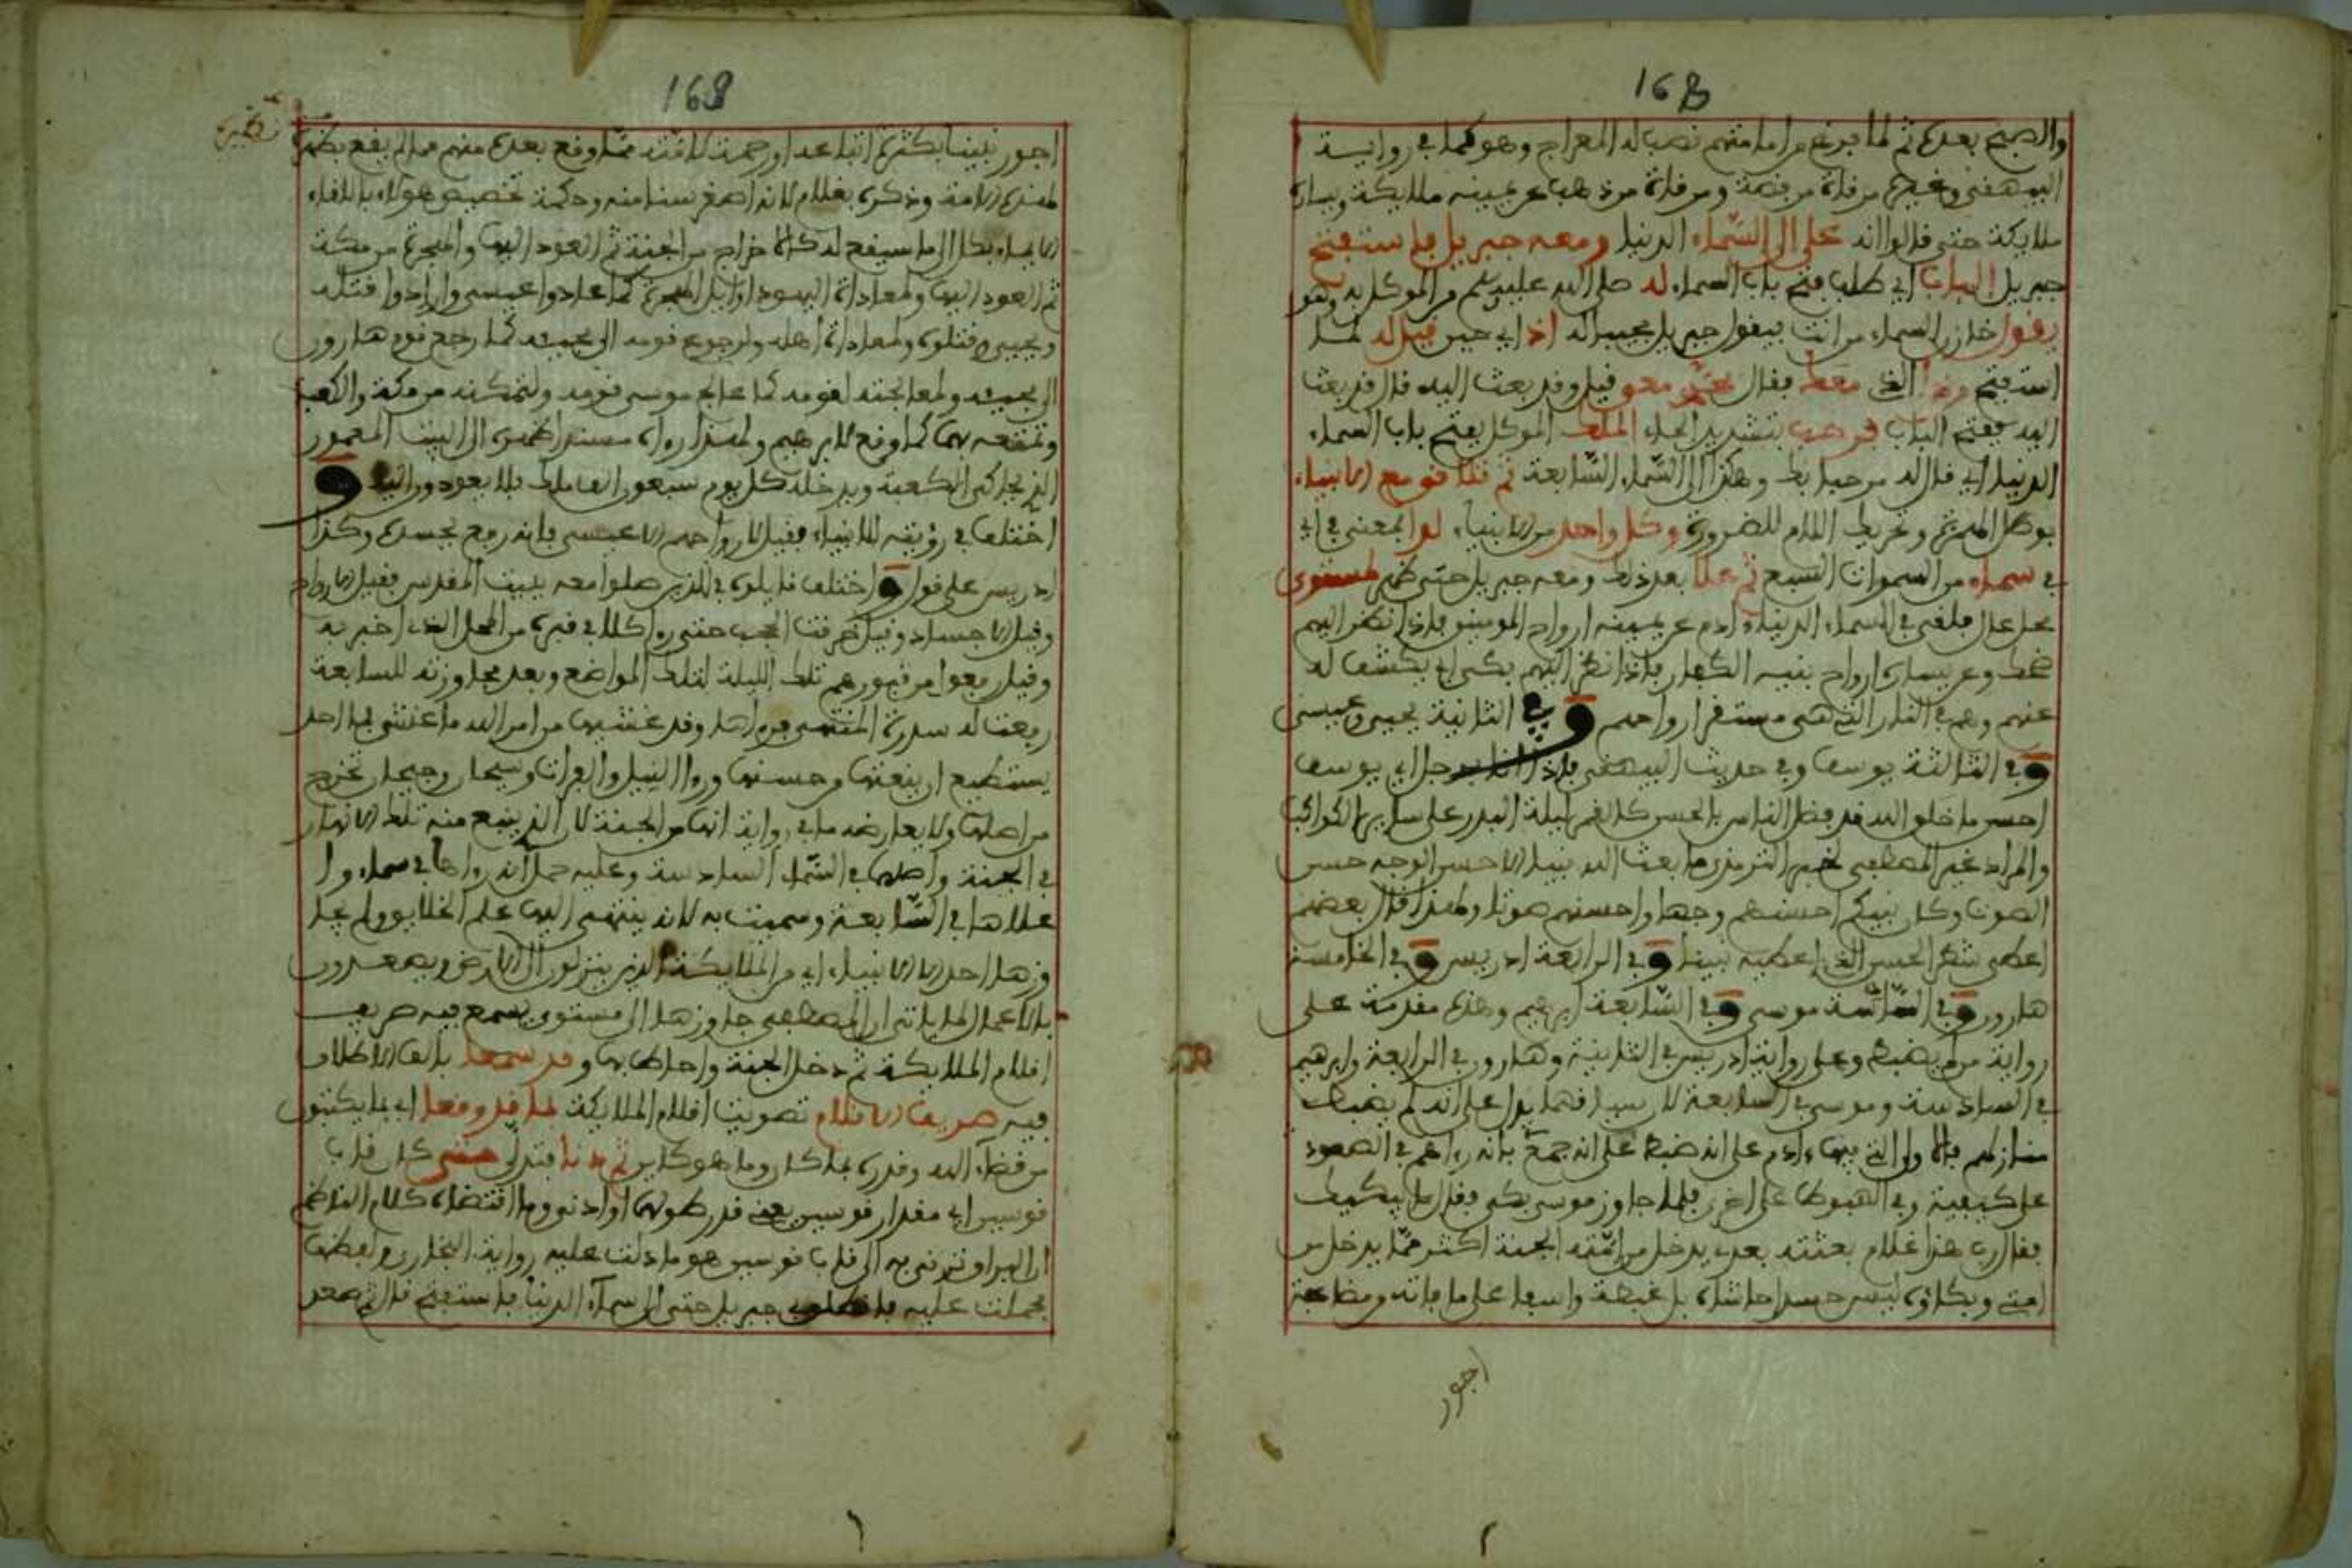 168
والصبح بعدها ثم لما فرغ من امامتهم نصب له المعراج وهو كما في رواية
البيهقي وغيره مرقاة من فضة ومرقاة من ذهب عن يمينه ملايكة ويساره
ملايكة حتى قالوا انه على الى السماء الدنيا ومعه جبريل فاستفتح
جبريل الباب اي طلب فتح باب السماء له صلى الله عليه وسلم من الموكل به وهو
يقول خازن السماء من انت فيقول جبريل مجيبا له اذ اي حين قيل له لما
استفتح ومن الذي معك فقال محمد معي قيل وقد بعث اليه قال قد بعث
اليه ففتح الباب فرحب بتشديد الحاء الملك الموكل بفتح باب السماء
الدنيا اي قال له مرحبا بك وهكذا الى السماء السابعة ثم تلاقو مع الانبياء
بوصل الهمزة وتحريك اللام للضرورة وكل واحد من الانبياء لو المعنى في اي
في سماء من السموات السبع ثم علا بعد ذلك ومعه جبريل حتى ظهر لمستوى
بمحل عال فلقي في السماء الدنيا ءادم عن يمينه ارواح المومنين فاذا نظر اليهم
ضحك وعن يساره ارواح بنيه الكفار فاذا نظر اليهم بكى اي يكشف له
عنهم وهم في النار التي هي مستقر ارواحهم وفي الثانية يحيى وعيسى
وفي الثالثة يوسف وفي حديث البيهقي فاذا انا برجل اي يوسف
احسن ما خلق الله قد فضل الناس بالحسن كالقمر ليلة البدر على ساير الكواكب
والمراد غير المصطفى لخبر الترمذي ما بعث الله نبيا الا حسن الوجه حسن
الصوت وكان نبيكم احسنهم وجها واحسنهم صوتا ولهذا قال بعضهم
اعطي شطر الحسن الذي اعطيه نبينا وفي الرابعة ادريس وفي الخامسة
هارون وفي السادسة موسى وفي السابعة ابرهيم وهذه مقدمة على
رواية من لم يضبط وعلى رواية ادريس في الثانية وهارون في الرابعة وابرهيم
في السادسة وموسى في السابعة لان سياقهما يدل على انه لم يضبط
منازلهم فالاولى التي فيها ءادم على انه ضبط على انه جمع بانه رءاهم في الصعود
على كيفية وفي الهبوط على اخرى فلما جاوز موسى بكى فقال ما يبكيك
فقال رب هذا غلام بعثته بعدي يدخل من امته الجنة اكثر مما يدخل من
امتي وبكاؤه ليس حسدا حاشاه بل غبطة واسفا على ما فاته ومضاعفة
اجور
168
تكثيره
اجور نبينا بكثرة اتباعه او رحمة لامته مما وقع بعده منهم مما لم يقع نظيره
لهذه الامة وذكره بغلام لانه اصغر سنا منه وحكمة تخصيص هؤلاء باللقاء
الايماء بكل الى ما سيقع له كالاخراج من الجنة ثم العود اليها والهجرة من مكة
ثم العود اليها ولمعاداة اليهود اوايل الهجرة كما عادوا عيسى وارادوا قتله
ويحيى وقتلوه ولمعاداة اهله ولرجوع قومه الى محبته كما رجع قوم هارون
الى محبته ولمعالجته لقومه كما عالج موسى قومه ولتمكنه من مكة والكعبة
وتمتعه بها كما وقع لابرهيم ولهذا رءاه مسندا ظهره الى البيت المعمور
الذي يحاكي الكعبة ويدخله كل يوم سبعون الف ملك فلا يعودون اليه و
اختلف في رؤيته للانبياء فقيل لارواحهم الا عيسى فانه رفع بجسده وكذا
ادريس على قول واختلف قايلوه في الذين صلوا معه ببيت المقدس فقيل الارواح
وقيل الاجساد وقيل خرقت الحجب حتى رءا كلا في قبره من المحل الذي اخبر به
وقيل رفعوا من قبورهم تلك الليلة لتلك المواضع وبعد مجاوزته للسابعة
رفعت له سدرة المنتهى فرءاها وقد غشيها من امر الله ما غشي فما احد
يستطيع ان ينعتها من حسنها ورءا النيل والفرات وسيحان وجيحان تخرج
من اصلها ولا يعارضه ما في رواية انها من الجنة لان الذي ينبع منه تلك الانهار
في الجنة واصلها في السماء السادسة وعليه حمل انه رءاها في سماء و ا
علاها في السابعة وسميت به لانه ينتهي اليها علم الخلايق ولم يجا
وزها احد الا الانبياء اي من الملايكة الذين ينزلون الى الارض ويصعدون
بالاعمال فلا ياتي ان المصطفى جاوزها الى مستوى يسمع فيه صريف
اقلام الملايكة ثم دخل الجنة واحاط بها وقد سمعا بالف الاطلاق
فيه صريف الاقلام تصويت اقلام الملايكة لما قد وقعا اي بما يكتبون
من قضاء الله وقدره بما كان وما هو كاين ثم دنا فتدلى حتى كان قاب
قوسين اي مقدار قوسين يعني قدر طولهما او ادنى وما اقتضاه كلام الناظم
ان البراق ترقى به الى قاب قوسين هو ما دلت عليه رواية البخاري ولفظها
فحملت عليه فانطلق جبريل حتى الى سماء الدنيا فاستفتح قال ثم صعد